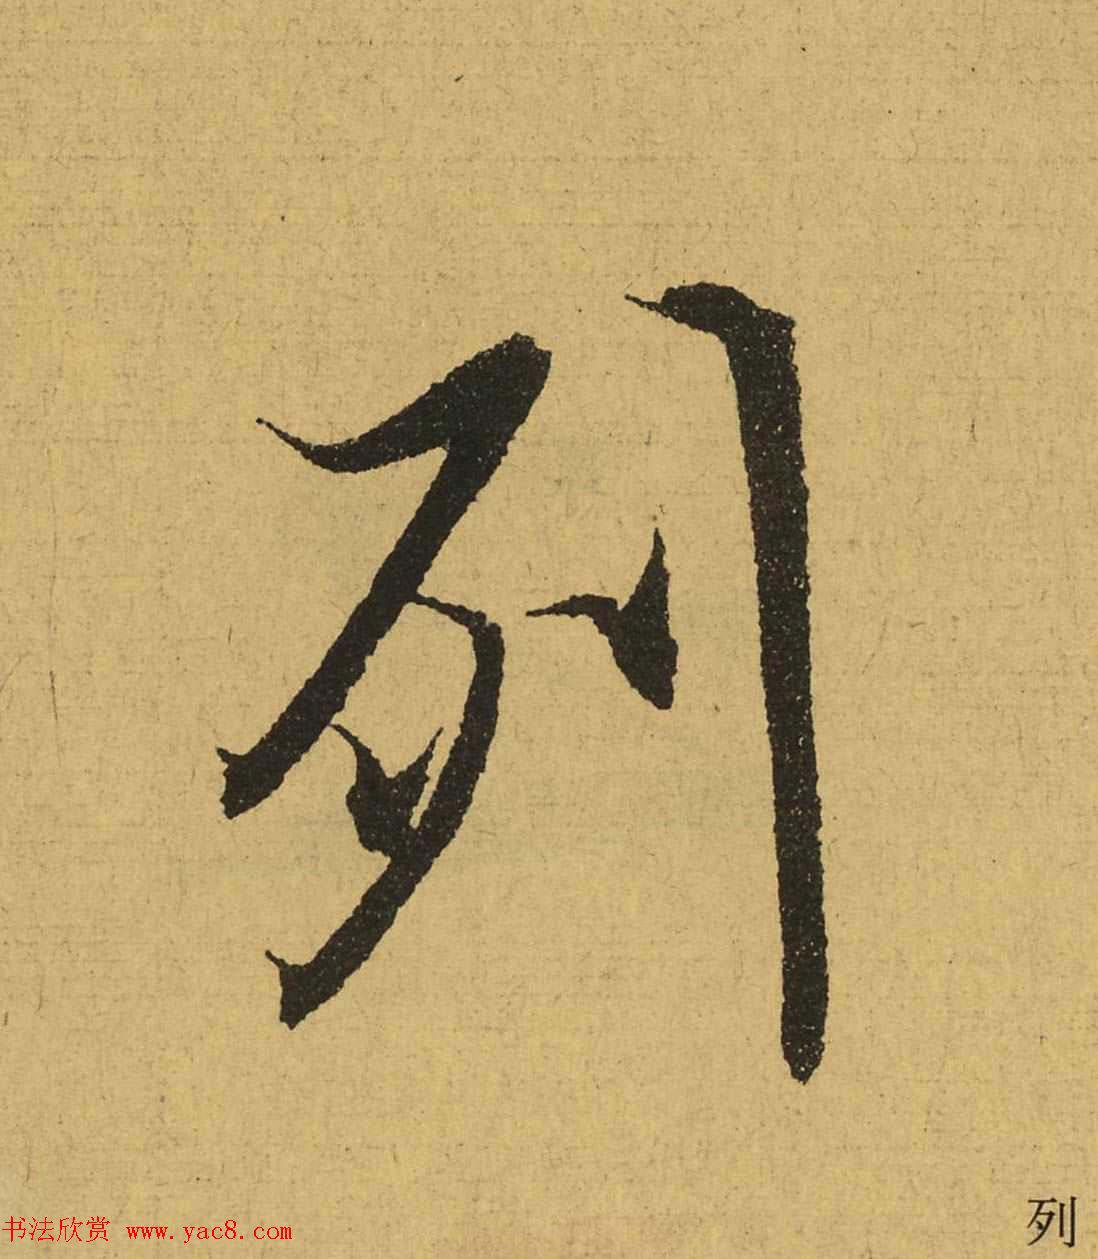 列
书法欣赏 www.yac8.com
列